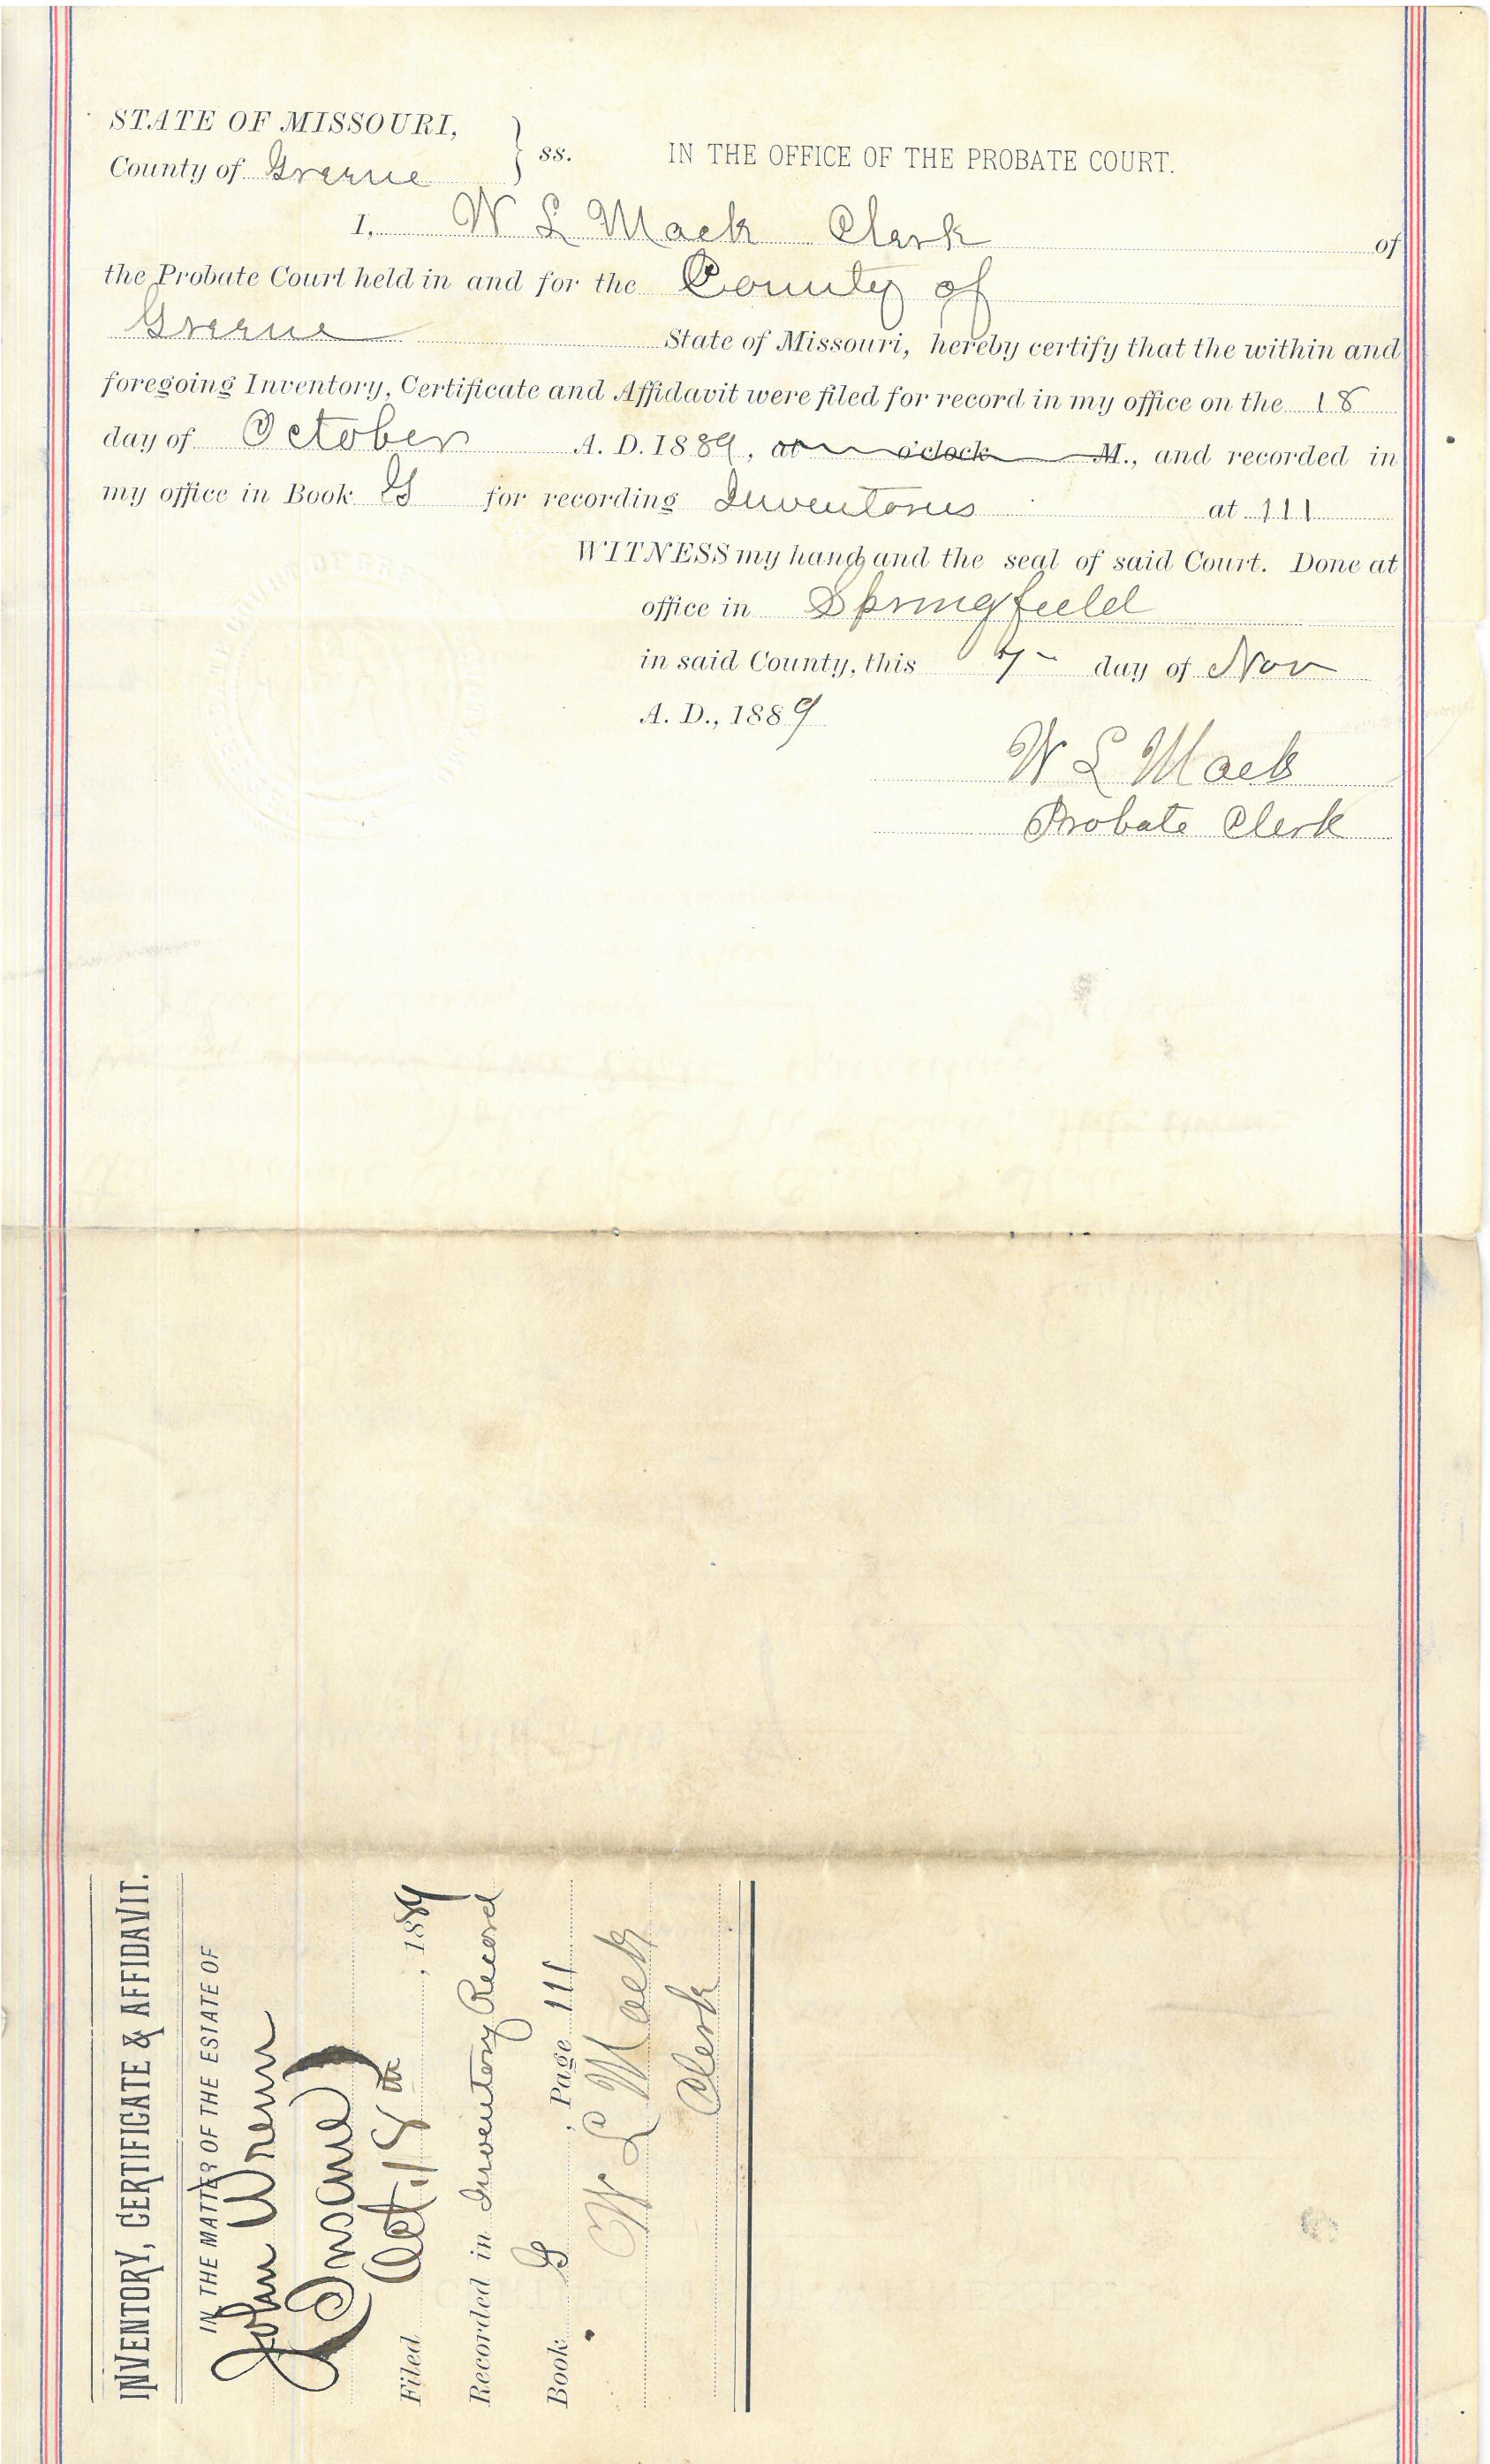 STATE OF MISSOURI,
County of Greene } ss. IN THE OFFICE OF THE PROBATE COURT.
I, W L Mack Clerk of
the Probate Court held in and for the County of
Greene State of Missouri, hereby certify that the within and
foregoing Inventory, Certificate and Affidavit were filed for record in my office on the 18
day of October A. D. 1889, at o'clock M., and recorded in
my office in Book G for recording Inventories at 111
WITNESS my hand and the seal of said Court. Done at
office in Springfield
in said County, this 7 day of Nov
A. D., 1889
W L Mack
Probate Clerk
INVENTORY, CERTIFICATE & AFFIDAVIT.
IN THE MATTER OF THE ESTATE OF
John Wrenn
(Insane)
Filed Oct. 18th, 1889
Recorded in Inventory Record
Book G, Page 111
W L Mack
Clerk